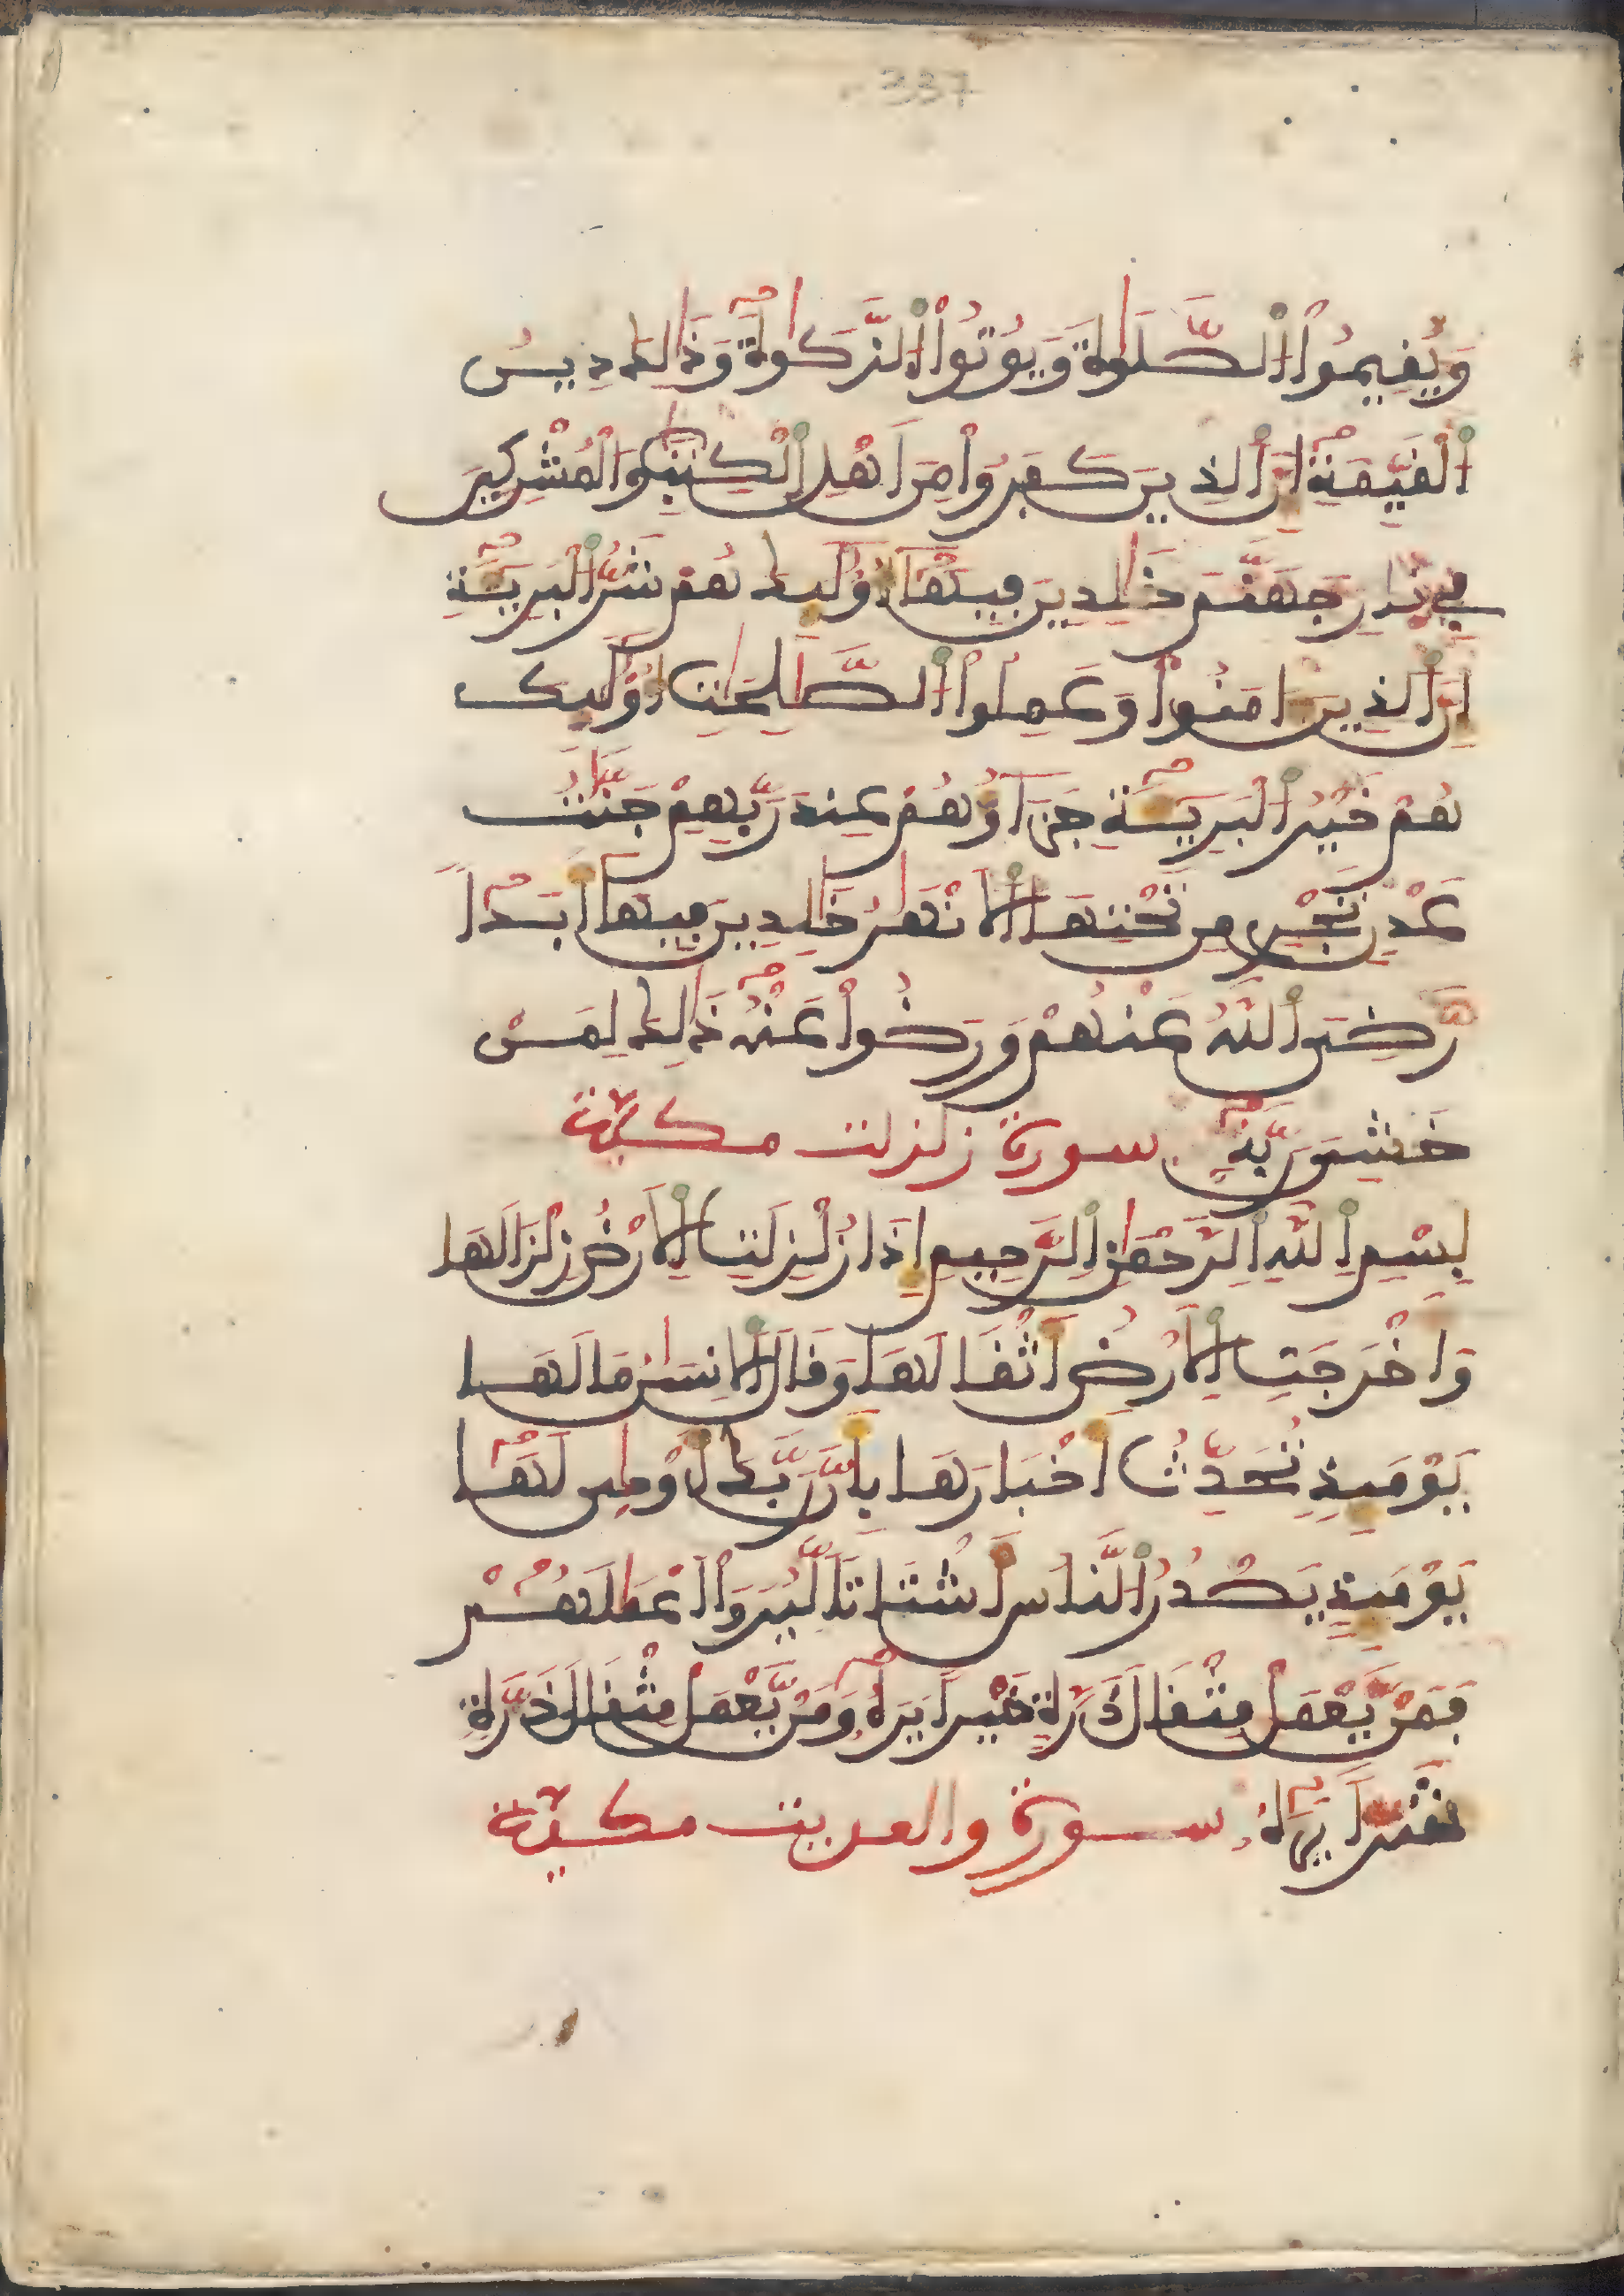 337
وَيُقِيمُوا۟ اُ۬لصَّلَوٰةَ وَيُوتُوا۟ اُ۬لزَّكَوٰةَ وَذَٰلِكَ دِينُ
اُ۬لْقَيِّمَةِ إِنَّ اَ۬لذِينَ كَفَرُوا۟ مِنَ اَهْلِ اِ۬لْكِتَٰبِ وَالْمُشْرِكِينَ
فِے نٰارِ جَهَنَّمَ خَٰلِدِينَ فِيهَآ أُوْلَٰٓئِكَ هُمْ شَرُّ اُ۬لْبَرِيٓـَٔةِ
إِنَّ اَ۬لذِينَ ءَامَنُوا۟ وَعَمِلُوا۟ اُ۬لصَّٰلِحَٰتِ أُوْلَٰٓئِكَ
هُمْ خَيْرُ اُ۬لْبَرِيٓـَٔةِ جَزَآؤُهُمْ عِندَ رَبِّهِمْ جَنَّٰتُ
عَدْنٍ تَجْرِے مِن تَحْتِهَا اَ۬لَانْهَٰرُ خَٰلِدِينَ فِيهَآ أَبَداً
رَّضِيَ اَ۬للَّهُ عَنْهُمْ وَرَضُوا۟ عَنْهُ ذَٰلِكَ لِمَنْ
خَشِيَ رَبَّهُ سورة زلزلت مكية
بِسْمِ اِ۬للَّهِ اِ۬لرَّحْمَٰنِ اِ۬لرَّحِيمِ إِذَا زُلْزِلَتِ اِ۬لَارْضُ زِلْزَالَهَا
وَأَخْرَجَتِ اِ۬لَارْضُ أَثْقَالَهَا وَقَالَ اَ۬لِانسَٰنُ مَا لَهَا
يَوْمَئِذٍ تُحَدِّثُ أَخْبَارَهَا بِأَنَّ رَبَّكَ أَوْحَىٰ لَهَا
يَوْمَئِذٍ يَصْدُرُ اُ۬لنَّاسُ أَشْتَاتاً لِّيُرَوَا۟ اَعْمَٰلَهُمْ
فَمَنْ يَّعْمَلْ مِثْقَالَ ذَرَّةٍ خَيْراً يَرَهُۥ وَمَنْ يَّعْمَلْ مِثْقَالَ ذَرَّةٍ
شَرّاً يَرَهُ سورة والعديت مكية